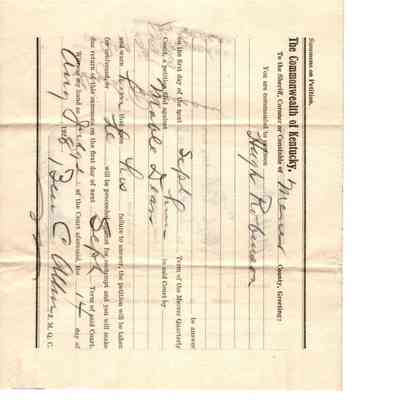 Summons on Petition.
The Commonwealth of Kentucky,
To the Sheriff, Coroner or Constable of Mercer County, Greeting:
You are commanded to summon
Hugh Robinson
to answer
on the first day of the next Sept Term of the Mercer Quarterly
Court, a petition filed against him in said Court by
Mable Dean
and warn him that upon his failure to answer, the petition will be taken
for confessed, or he will be proceeded against for contempt and you will make
due return of this summons on the first day of next Sept Term of said Court.
Witness my hand as Judge of the Court aforesaid, this 14 day of
Aug 1928. Ben C Allin J. M. Q. C.